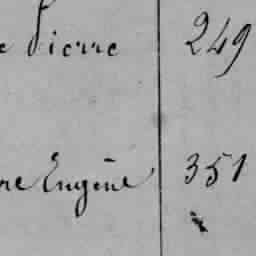 e Pierre 249
re Eugène 351